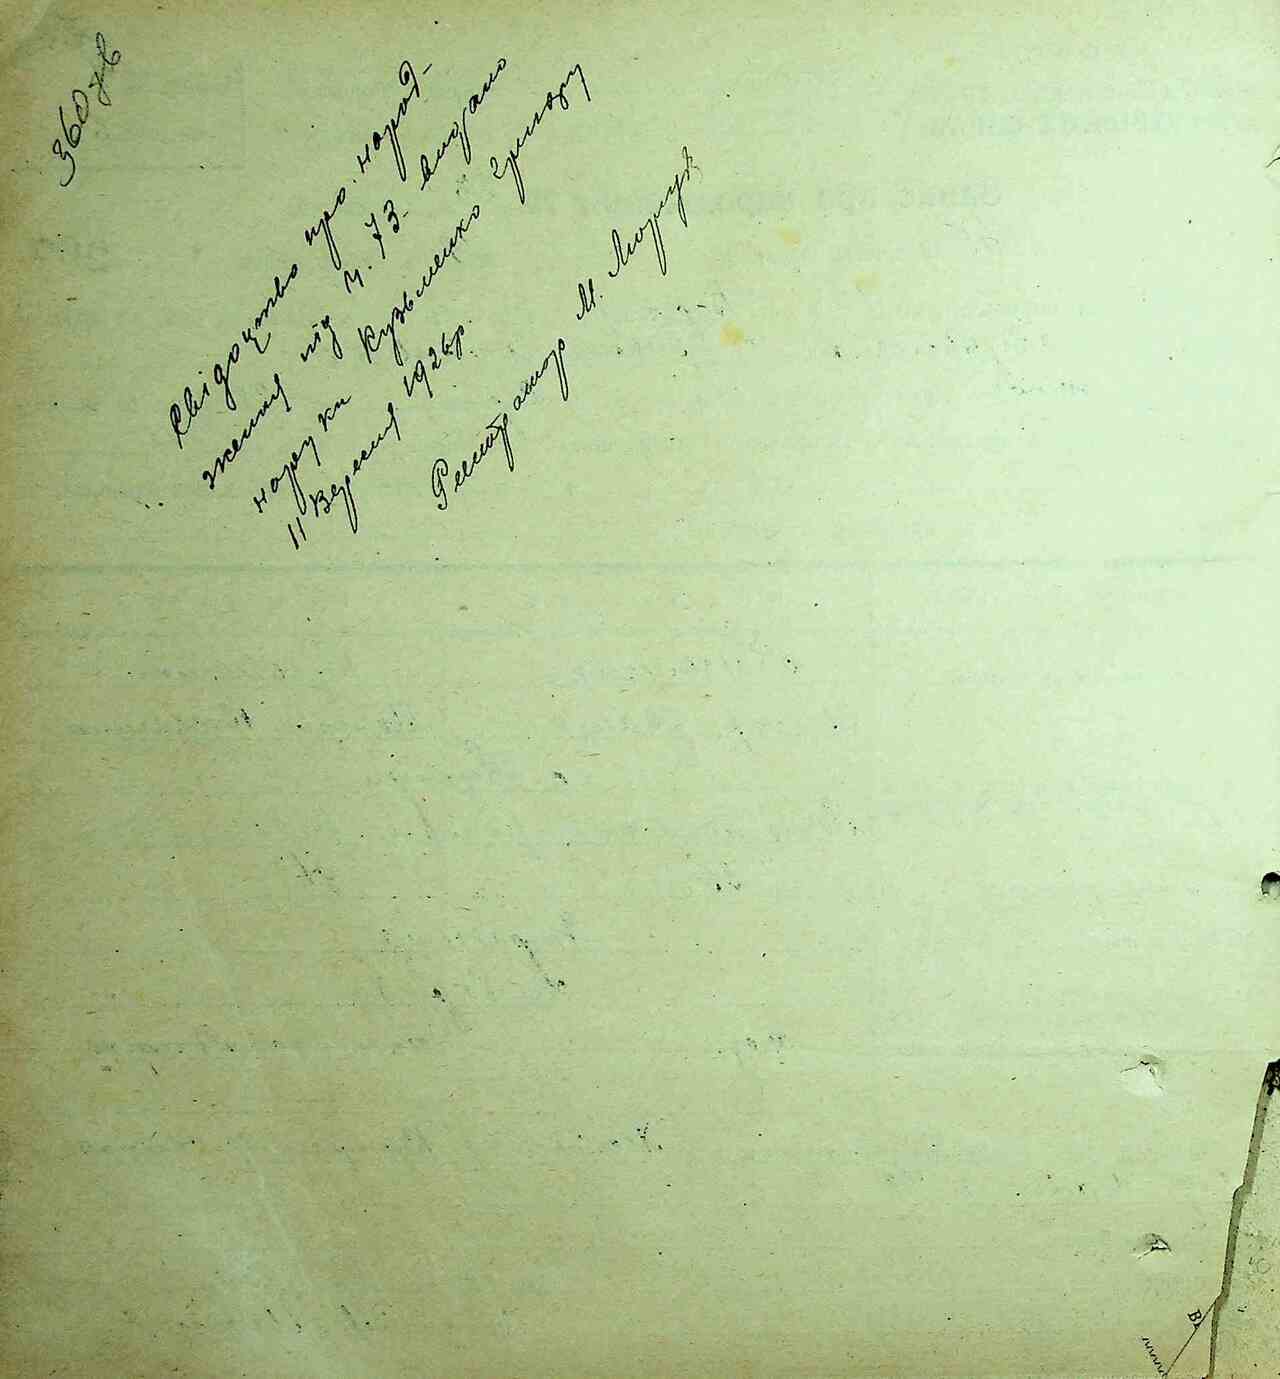 360 зв
Свідоцтво про народ-
ження під ч. 73 видано
на руки Кузьменко Григору
11 Вересня 1926 р.
Реєстратор М.